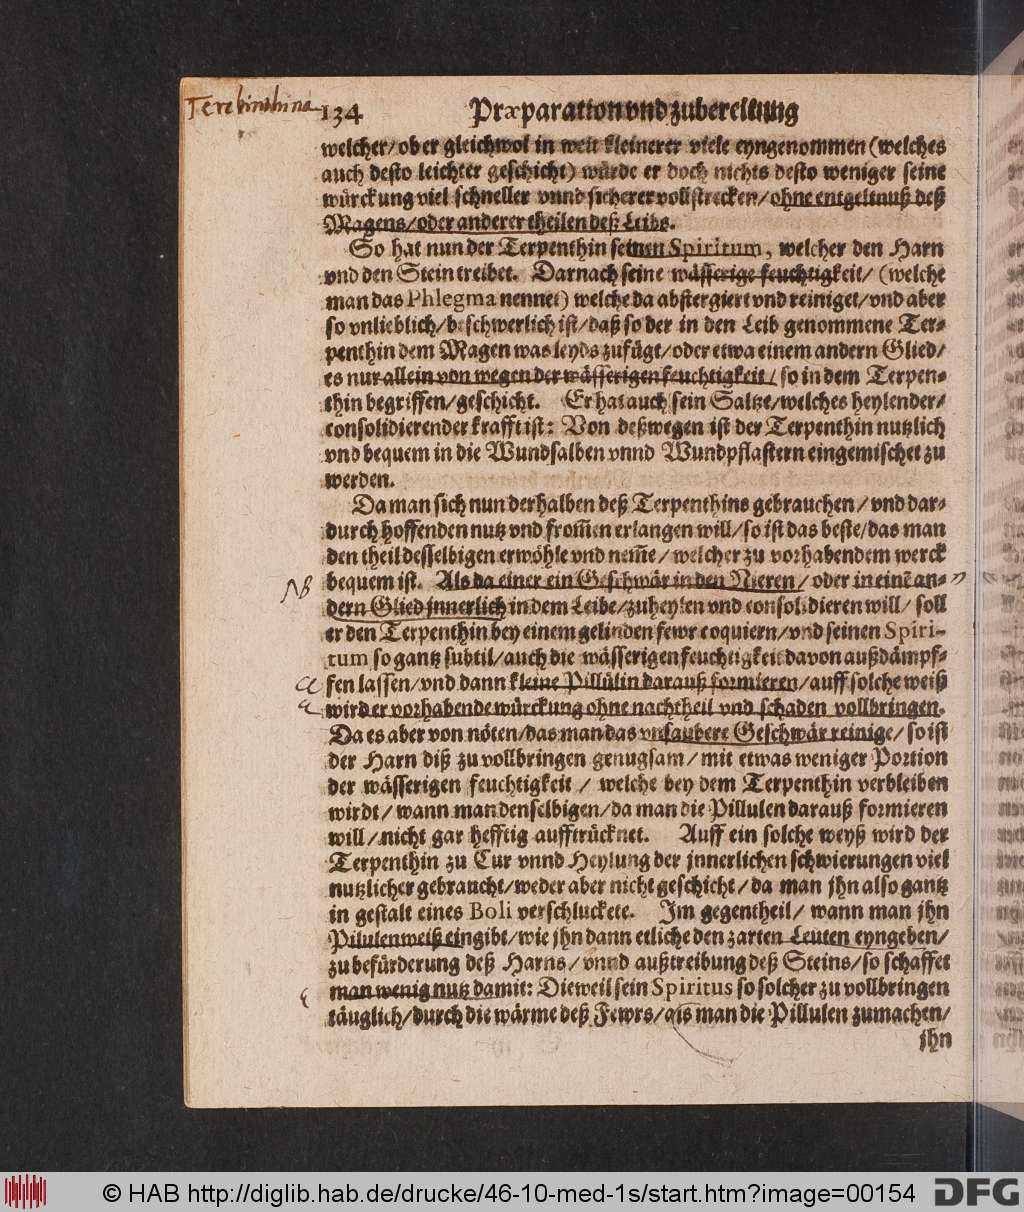 Terebinthina
134 Præparation vnd zubereitung
welcher/ ob er gleichwol in weit kleinerer viele eyngenommen (welches
auch desto leichter geschicht) würde er doch nichts desto weniger seine
würckung viel schneller vnnd sicherer vollstrecken/ ohne entgeltnuß deß
Magens/ oder anderer theilen deß Leibs.
So hat nun der Terpenthin seinen Spiritum, welcher den Harn
vnd den Stein treibet. Darnach seine wässerige feuchtigkeit/ (welche
man das Phlegma nennet) welche da abstergiert vnd reiniget/ vnd aber
so vnlieblich/ beschwerlich ist/ daß so der in den Leib genommene Ter-
penthin dem Magen was leyds zufügt/ oder etwa einem andern Glied/
es nur allein von wegen der wässerigen feuchtigkeit/ so in dem Terpen-
thin begriffen/ geschicht. Er hat auch sein Saltze/ welches heylender/
consolidierender krafft ist: Von deßwegen ist der Terpenthin nutzlich
vnd bequem in die Wundsalben vnnd Wundpflastern eingemischet zu
werden.
Da man sich nun derhalben deß Terpenthins gebrauchen/ vnd dar-
durch hoffenden nutz vnd from̃en erlangen will/ so ist das beste/ das man
den theil desselbigen erwöhle vnd nem̃e/ welcher zu vorhabendem werck
NB bequem ist. Als da einer ein Geschwär in den Nieren/ oder in einẽ an- "
dern Glied jnnerlich in dem Leibe/ zuheylen vnd consolidieren will/ soll
er den Terpenthin bey einem gelinden fewr coquiern/ vnd seinen Spiri-
tum so gantz subtil/ auch die wässerigen feuchtigkeit davon außdämpf-
fen lassen/ vnd dann kleine Pillülin darauß formieren/ auff solche weiß
wird er vorhabende würckung ohne nachtheil vnd schaden vollbringen.
Da es aber von nöten/ das man das vnsaubere Geschwär reinige/ so ist
der Harn diß zu vollbringen genugsam/ mit etwas weniger Portion
der wässerigen feuchtigkeit/ welche bey dem Terpenthin verbleiben
wirdt/ wann man denselbigen/ da man die Pillulen darauß formieren
will/ nicht gar hefftig aufftrücknet. Auff ein solche weyß wird der
Terpenthin zu Cur vnnd Heylung der jnnerlichen schwierungen viel
nutzlicher gebraucht/ weder aber nicht geschicht/ da man jhn also gantz
in gestalt eines Boli verschluckete. Im gegentheil/ wann man jhn
Pilulenweiß eingibt/ wie jhn dann etliche den zarten Leuten eyngeben/
zu befürderung deß Harns/ vnnd außtreibung deß Steins/ so schaffet
man wenig nutz damit: Dieweil sein Spiritus so solcher zu vollbringen
täuglich/ durch die wärme deß Fewrs/ als man die Pillulen zumachen/
jhn
© HAB http://diglib.hab.de/drucke/46-10-med-1s/start.htm?image=00154
DFG